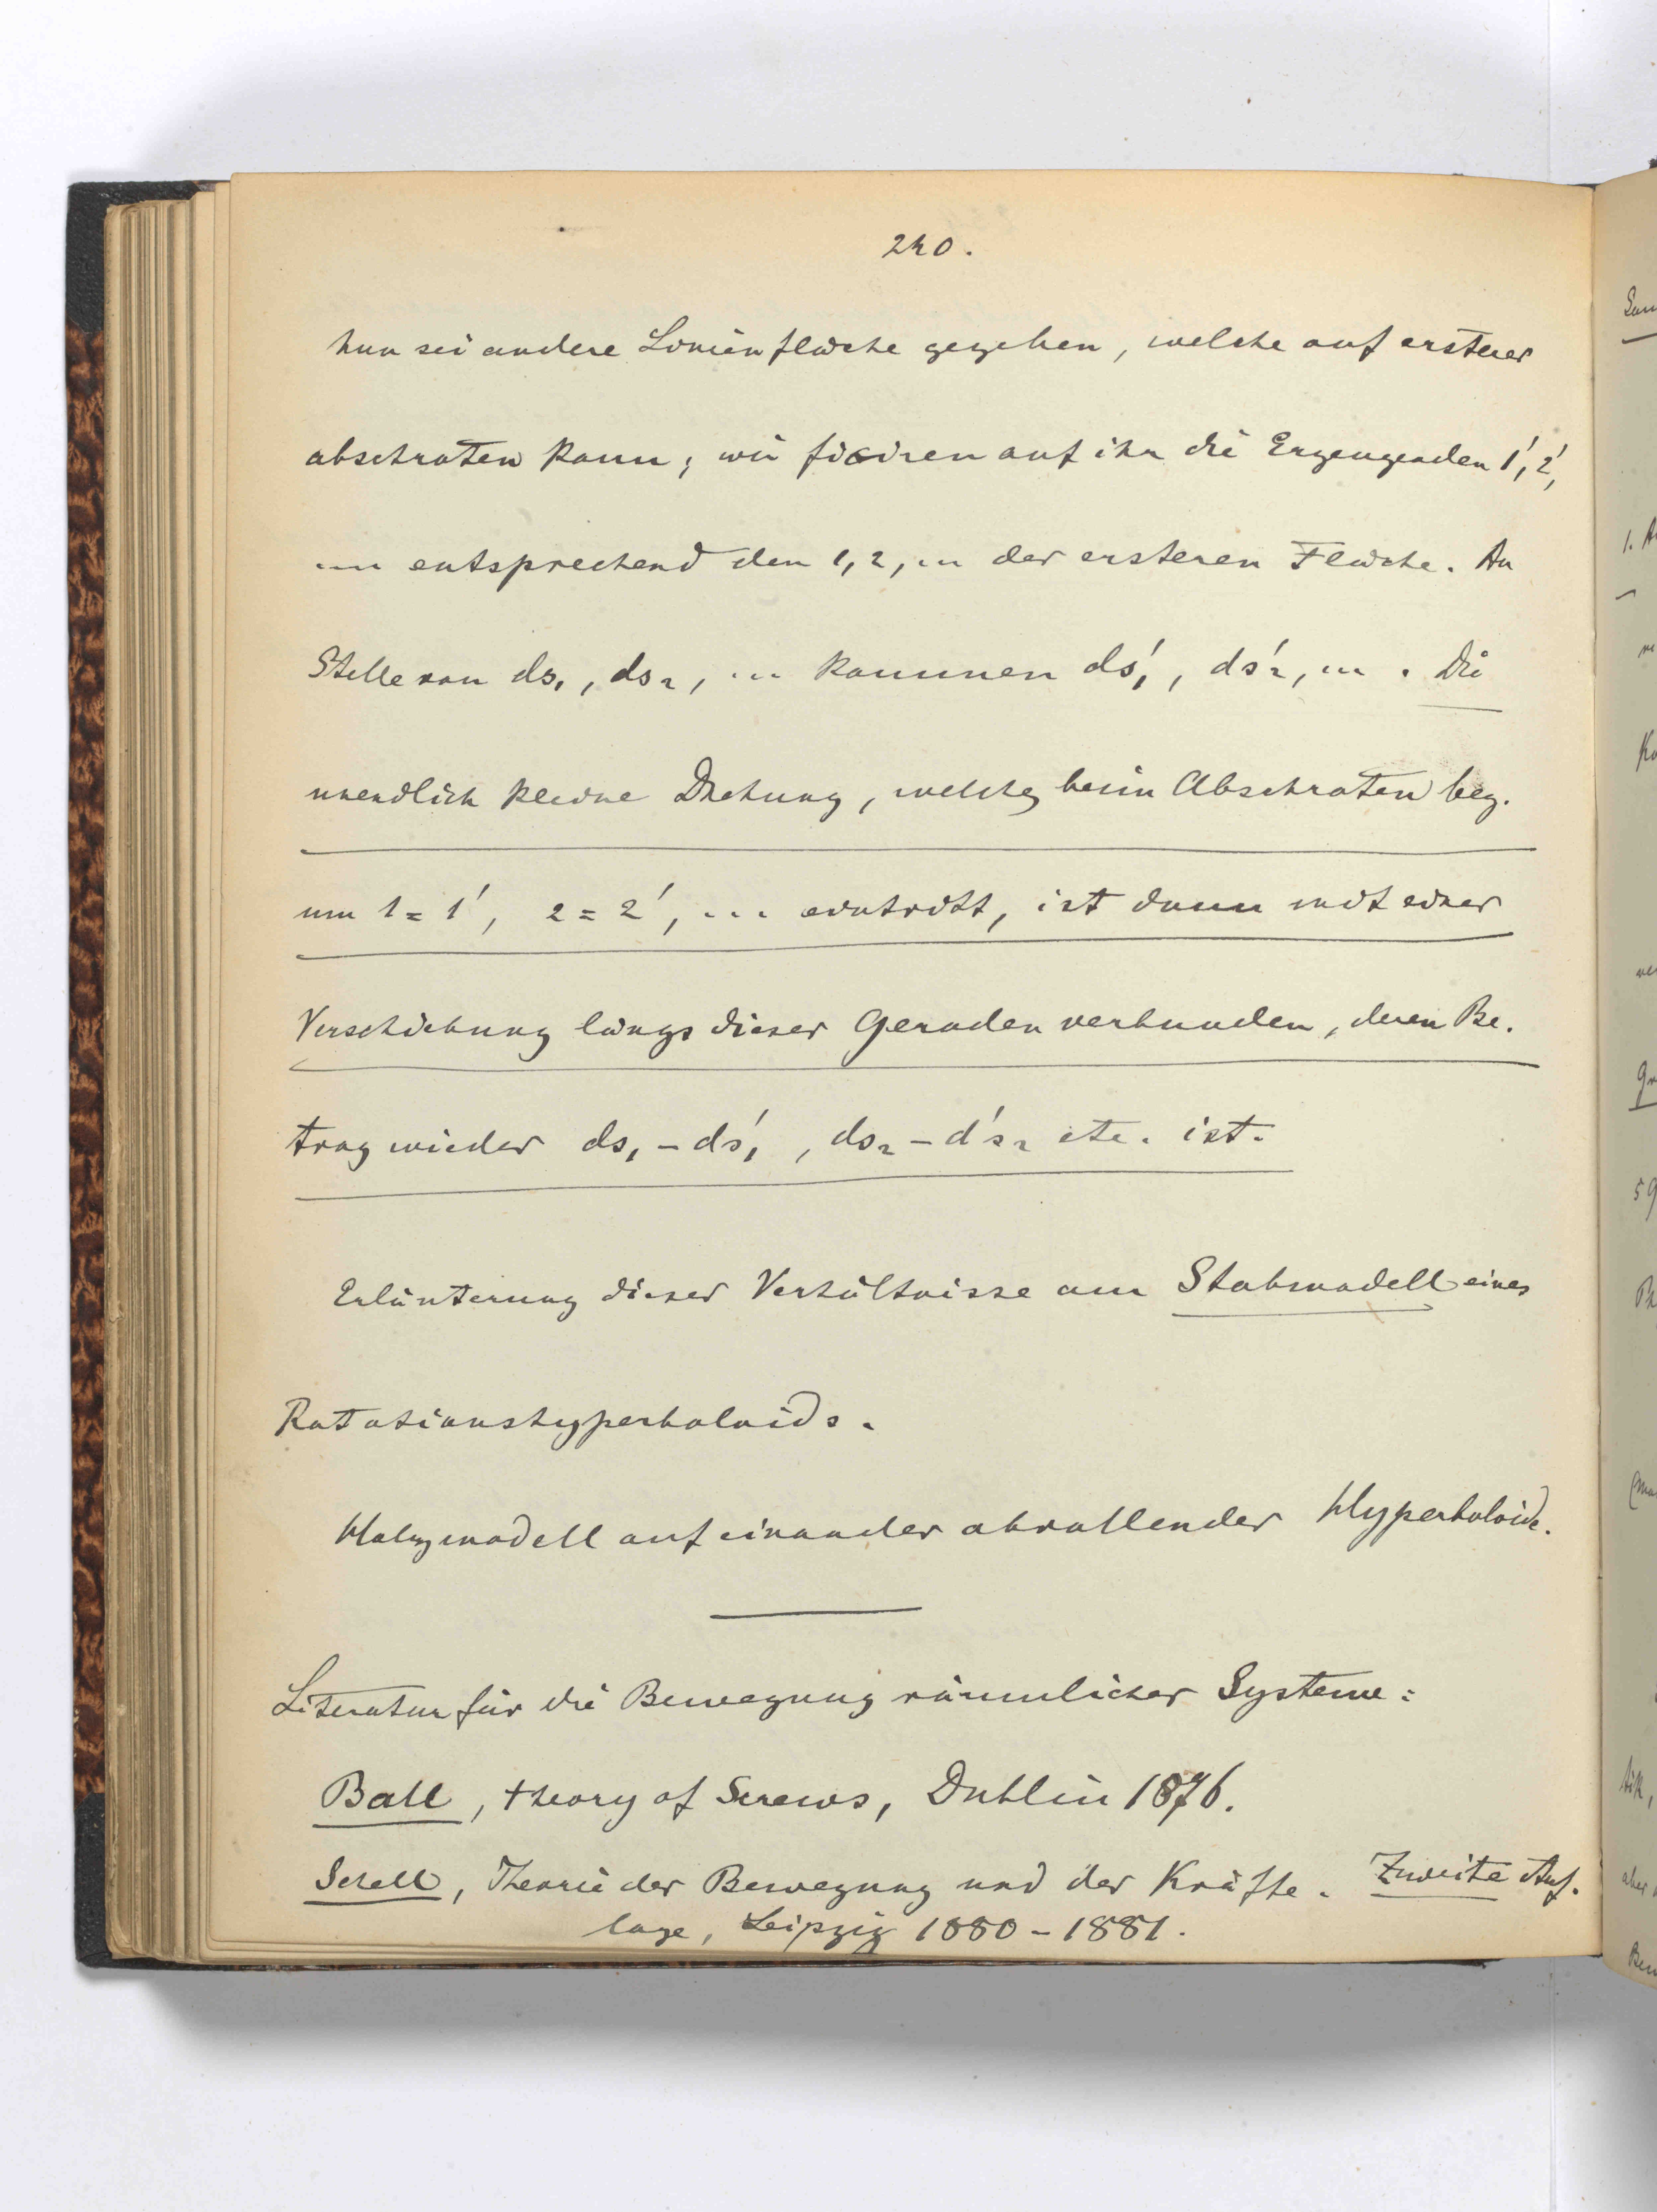 240.
Nun sei andere Linienfläche gegeben, welche auf ersterer
abschroten kann; wir fixiren auf ihr die Erzeugenden 1', 2',
... entsprechend den 1, 2, ... der ersteren Fläche. An
Stelle von ds₁, ds₂, ... kommen ds'₁, ds'₂, ... . Die
unendlich kleine Drehung, welche beim Abschroten bez.
um 1 = 1', 2 = 2', ... eintritt, ist dann mit einer
Verschiebung längs dieser Geraden verbunden, deren Be-
trag wieder ds₁ - ds'₁, ds₂ - ds'₂ etc. ist.
Erläuterung dieser Verhältnisse am Stabmodell eines
Rotationshyperboloids.
Holzmodell auf einander abrollender Hyperboloide.
Literatur für die Bewegung räumlicher Systeme:
Ball, theory of Screws, Dublin 1876.
Schell, Theorie der Bewegung und der Kräfte. Zweite Auf-
lage, Leipzig 1880-1881.